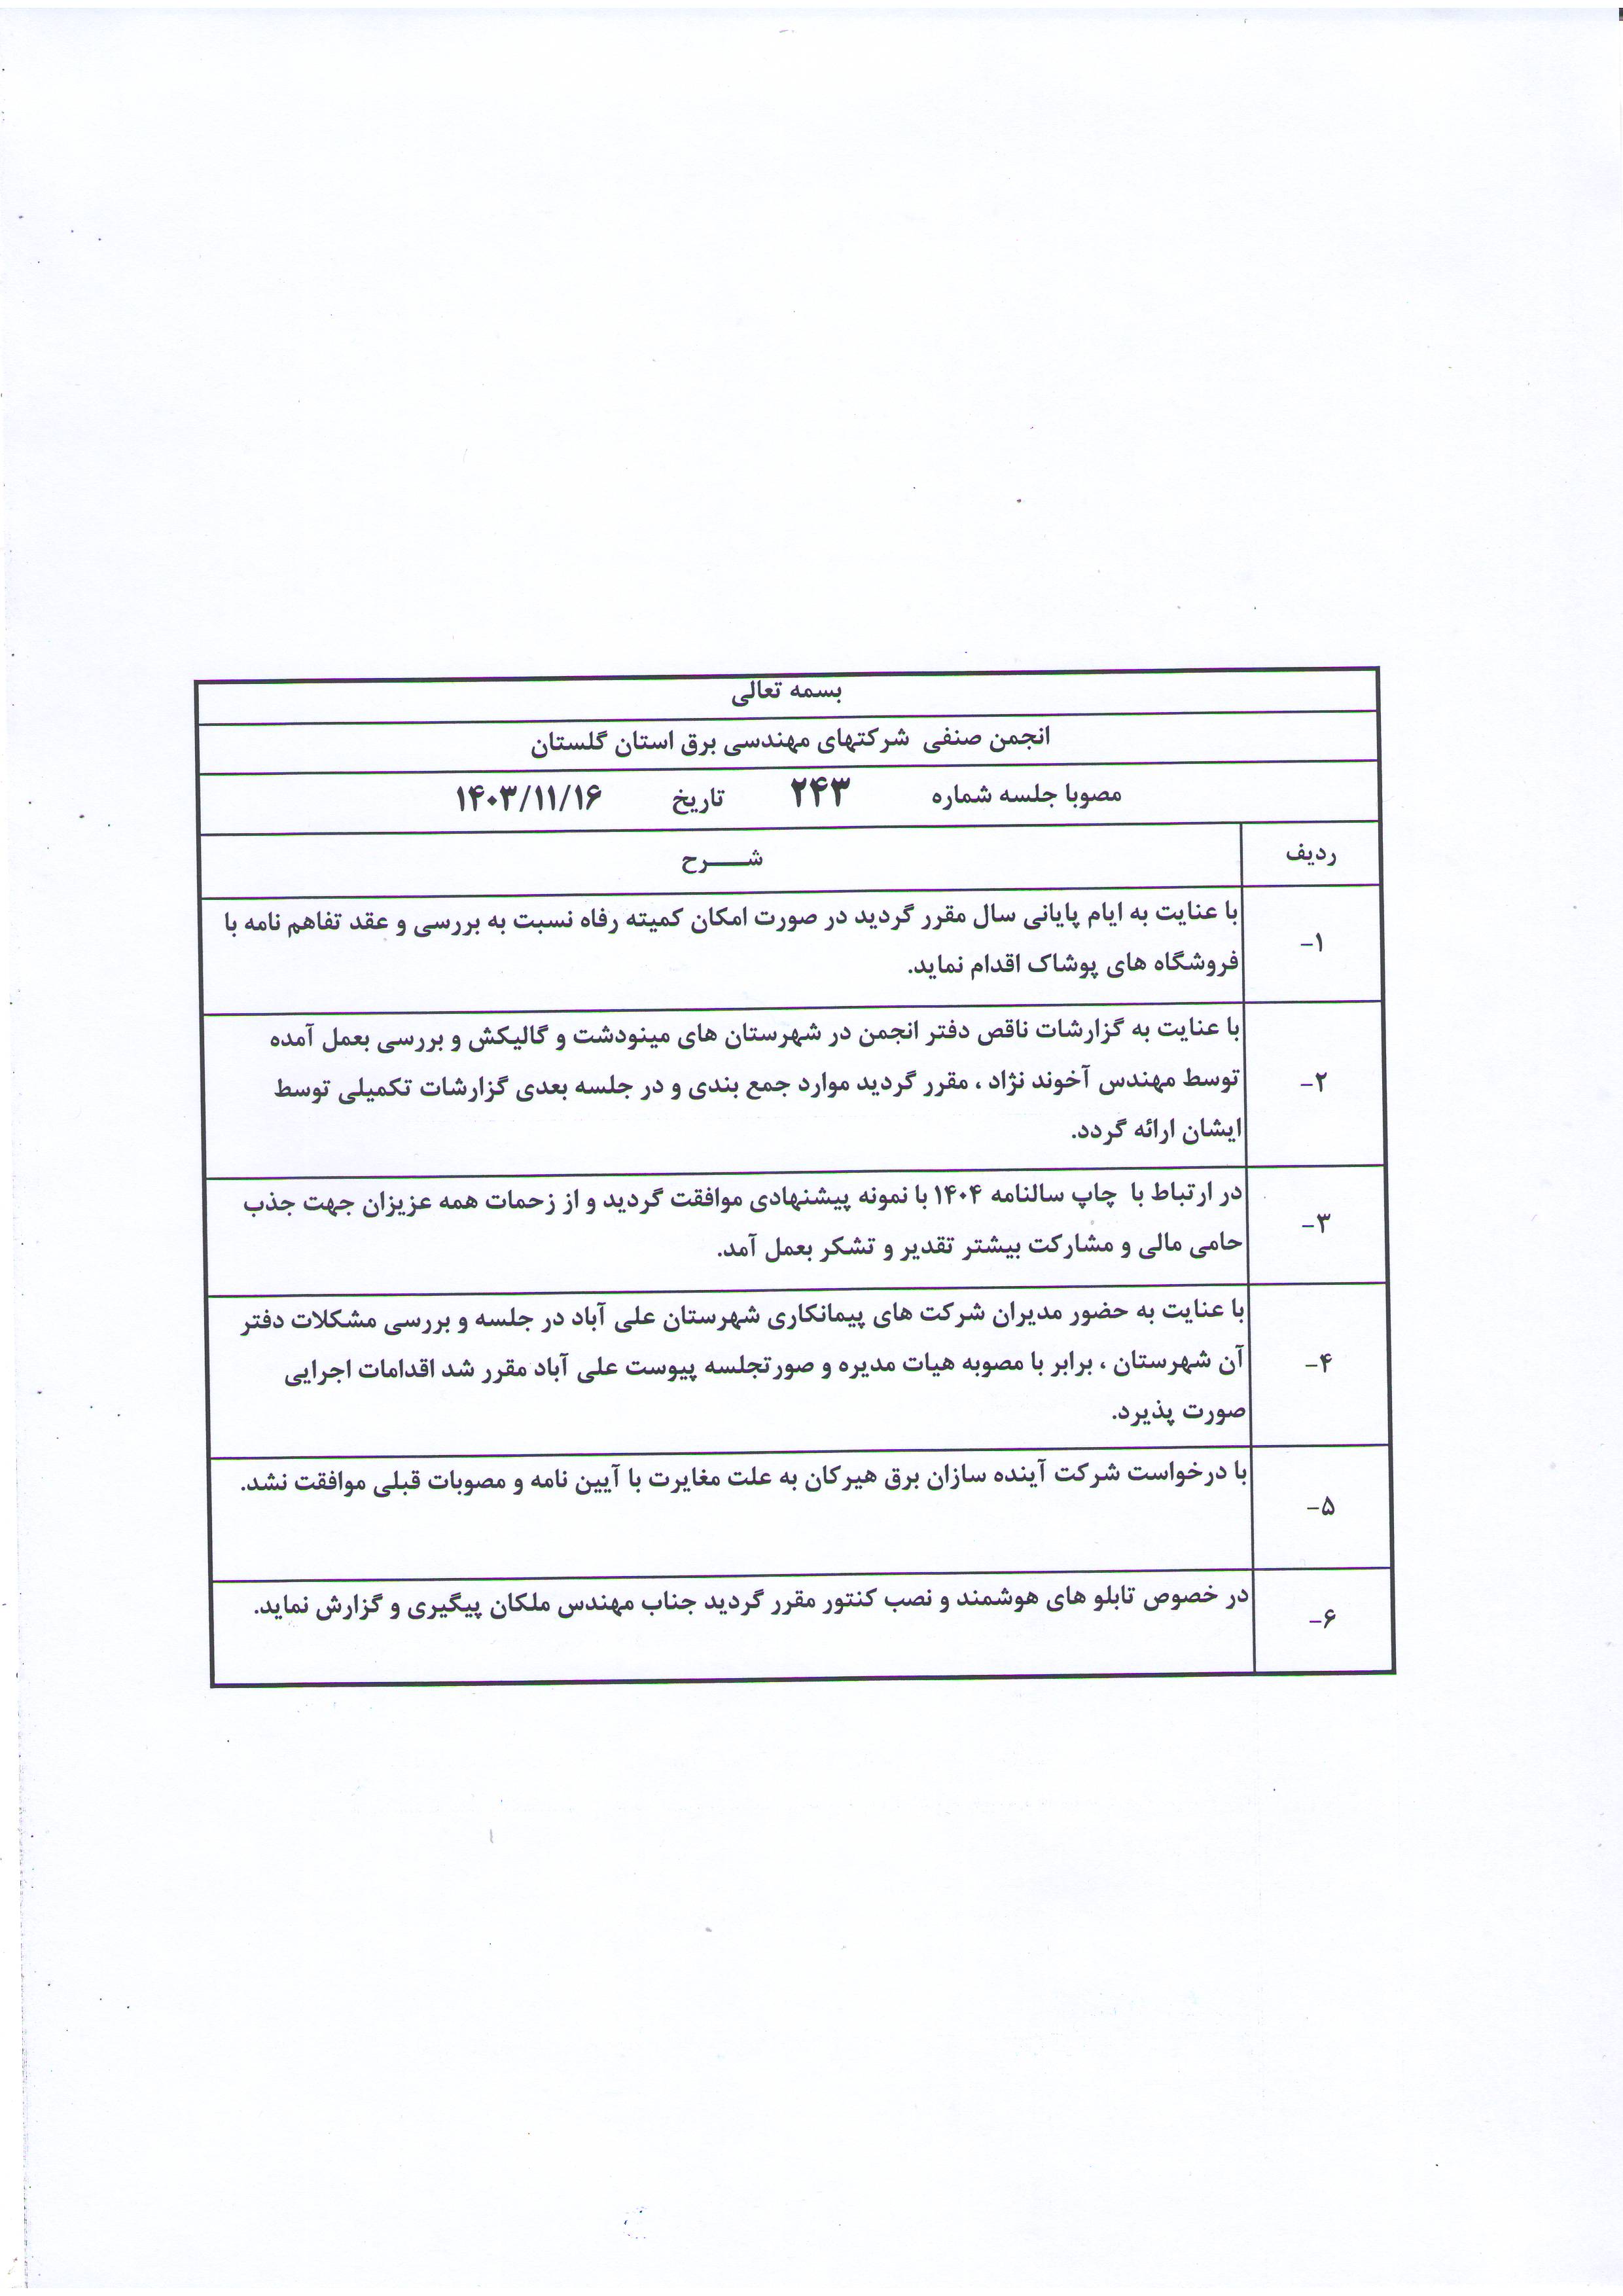 بسمه تعالی
انجمن صنفی شرکتهای مهندسی برق استان گلستان
مصوبا جلسه شماره ۲۴۳ تاریخ ۱۴۰۳/۱۱/۱۶
ردیف شــــرح
۱- با عنایت به ایام پایانی سال مقرر گردید در صورت امکان کمیته رفاه نسبت به بررسی و عقد تفاهم نامه با
فروشگاه های پوشاک اقدام نماید.
۲- با عنایت به گزارشات ناقص دفتر انجمن در شهرستان های مینودشت و گالیکش و بررسی بعمل آمده
توسط مهندس آخوند نژاد ، مقرر گردید موارد جمع بندی و در جلسه بعدی گزارشات تکمیلی توسط
ایشان ارائه گردد.
۳- در ارتباط با چاپ سالنامه ۱۴۰۴ با نمونه پیشنهادی موافقت گردید و از زحمات همه عزیزان جهت جذب
حامی مالی و مشارکت بیشتر تقدیر و تشکر بعمل آمد.
۴- با عنایت به حضور مدیران شرکت های پیمانکاری شهرستان علی آباد در جلسه و بررسی مشکلات دفتر
آن شهرستان ، برابر با مصوبه هیات مدیره و صورتجلسه پیوست علی آباد مقرر شد اقدامات اجرایی
صورت پذیرد.
۵- با درخواست شرکت آینده سازان برق هیرکان به علت مغایرت با آیین نامه و مصوبات قبلی موافقت نشد.
۶- در خصوص تابلو های هوشمند و نصب کنتور مقرر گردید جناب مهندس ملکان پیگیری و گزارش نماید.